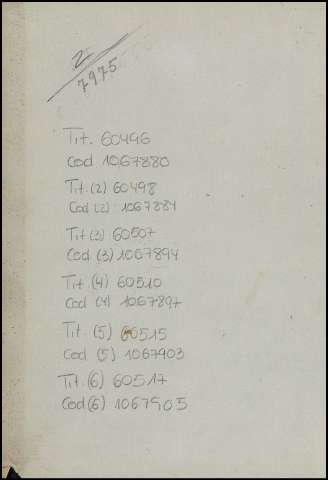 2
7975
Tit. 60496
Cod 1067880
Tit. (2) 60498
Cod (2) 1067884
Tit (3) 60507
Cod (3) 1067894
Tit. (4) 60510
Cod (4) 1067897
Tit. (5) 60515
Cod (5) 1067903
Tit. (6) 60517
Cod (6) 1067905